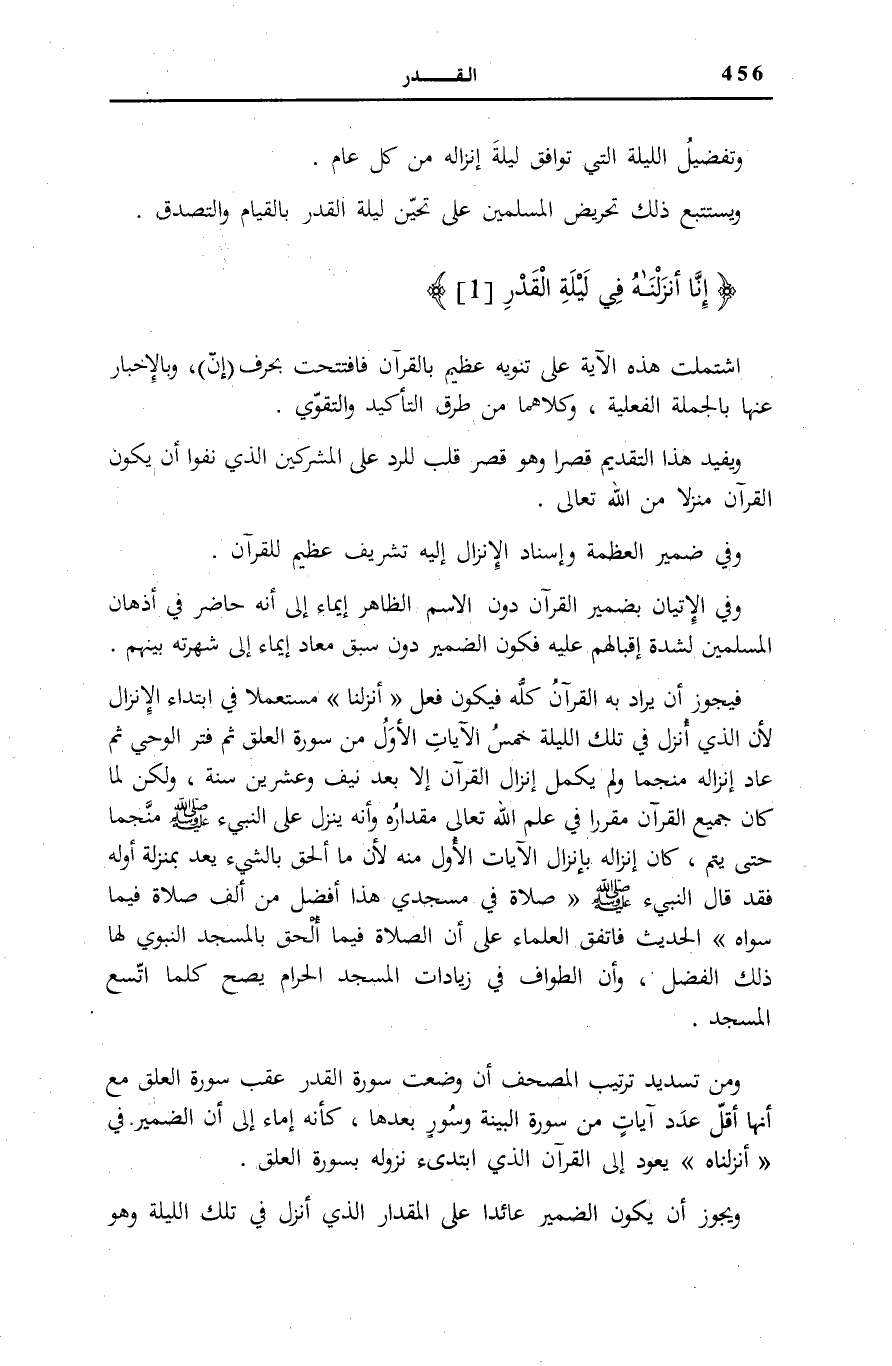 456
القـــــدر
وتفضيلُ الليلة التي توافق ليلةَ إنزاله من كل عام .
ويستتبع ذلك تحريض المسلمين على تحيّن ليلة القدر بالقيام والتصدق .
﴿ إِنَّا أَنزَلْنَـٰهُ فِي لَيْلَةِ الْقَدْرِ [1] ﴾
اشتملت هذه الآية على تنويه عظيم بالقرآن فافتتحت بحرف (إنّ)، وبالإخبار
عنها بالجملة الفعلية ، وكلاهما من طرق التأكيد والتقوّي .
ويفيد هذا التقديم قصرا وهو قصر قلب للرد على المشركين الذي نفوا أن يكون
القرآن منزلا من الله تعالى .
وفي ضمير العظمة وإسناد الإنزال إليه تشريف عظيم للقرآن .
وفي الإتيان بضمير القرآن دون الاسم الظاهر إيماء إلى أنه حاضر في أذهان
المسلمين لشدة إقبالهم عليه فكون الضمير دون سبق معاد إيماء إلى شهرته بينهم .
فيجوز أن يراد به القرآنُ كلَّه فيكون فعل « أنزلنا » مستعملا في ابتداء الإنزال
لأن الذي أُنزل في تلك الليلة خمسُ الآياتِ الأوَلُ من سورة العلق ثم فتر الوحي ثم
عاد إنزاله منجما ولم يكمل إنزال القرآن إلا بعد نيف وعشرين سنة ، ولكن لما
كان جميع القرآن مقررا في علم الله تعالى مقدارُه وأنه ينزل على النبيء ﷺ منَّجما
حتى يتم ، كان إنزاله بإنزال الآيات الأُول منه لأن ما ألحق بالشيء يعد بمنزلة أوله
فقد قال النبيء ﷺ « صلاة في مسجدي هذا أفضل من ألف صلاة فيما
سواه » الحديث فاتفق العلماء على أن الصلاة فيما أُلْحق بالمسجد النبوي لها
ذلك الفضل ، وأن الطواف في زيادات المسجد الحرام يصح كلما اتّسع
المسجد .
ومن تسديد ترتيب المصحف أن وضعت سورة القدر عقب سورة العلق مع
أنها أقلّ عدَد آياتٍ من سورة البينة وسُورٍ بعدها ، كأنه إماء إلى أن الضمير في
« أنزلناه » يعود إلى القرآن الذي ابتدىء نزوله بسورة العلق .
ويجوز أن يكون الضمير عائدا على المقدار الذي أنزل في تلك الليلة وهو